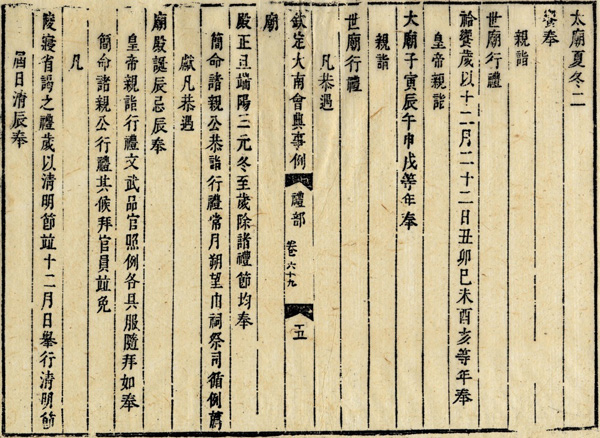 太廟夏冬二
饗奉
親詣
世廟行禮
祫饗歲以十二月二十二日丑卯巳未酉亥等年奉
皇帝親詣
太廟子寅辰午申戌等年奉
親詣
世廟行禮
凡恭遇
欽定大南會典事例 禮部 卷六十九 五
廟
殿正旦端陽三元冬至歲除諸禮節均奉
簡命諸親公恭詣行禮常月朔望由祠祭司循例薦
獻凡恭遇
廟殿誕辰忌辰奉
皇帝親詣行禮文武品官照例各具服隨拜如奉
簡命諸親公行禮其候拜官員竝免
凡
陵寢省謁之禮歲以清明節竝十二月日舉行清明節
屆日清辰奉